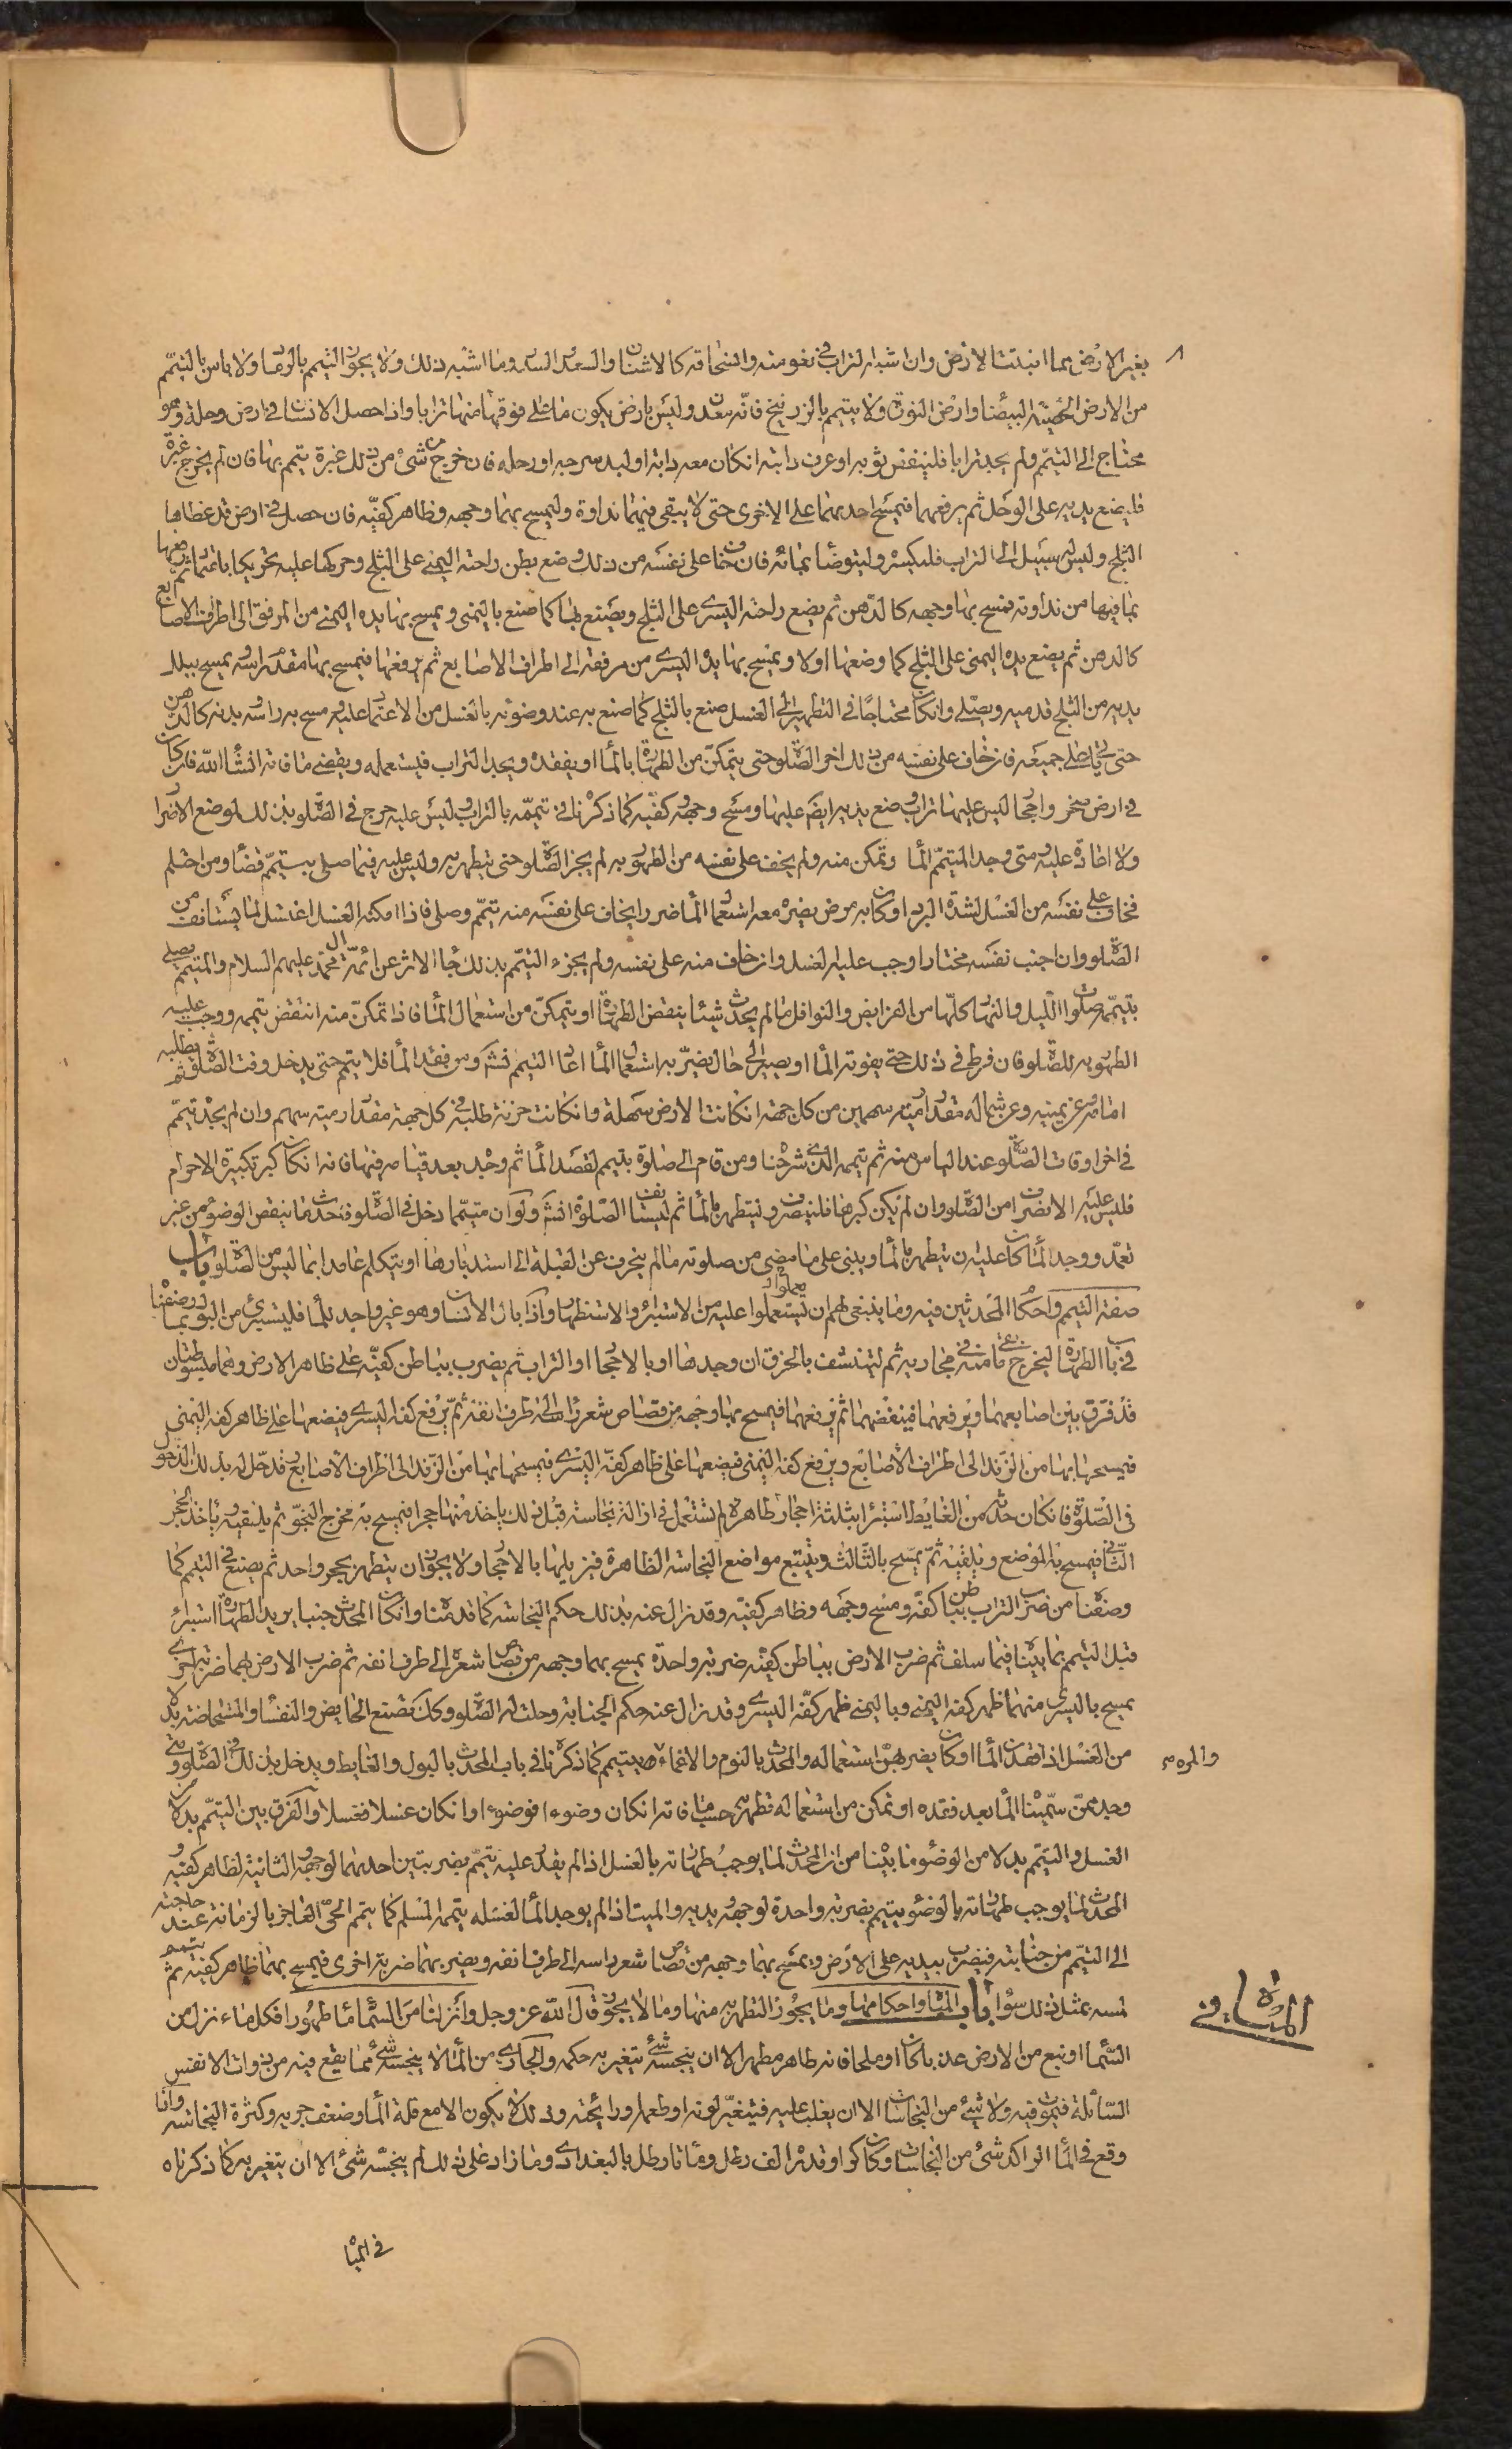 بغير الارض مما انبتت الارض وان اشبه التراب في نعومته وانسحاقه كالاشنان والسعد والسدر وما اشبه ذلك ولا يجوز التيمم بالرماد ولا باس بالتيمم
من الارض الجصية البيضا وارض النورة ولا يتيمم بالزرنيخ فانه معدن وليس بارض يكون ما على فوقها منها ترابا واذا حصل الانسان في ارض وحلة وهو
محتاج الى التيمم ولم يجد ترابا فلينفض ثوبه او عرف دابته ان كان معه دابة او لبد سرجه او رحله فان خرج من شئ من ذلك غبرة تيمم بها فان لم يخرج غبرة
فليضع يديه على الوحل ثم يرفعهما فيمسح احدهما على الاخرى حتى لا يبقى فيهما نداوة وليمسح بهما وجهه وظاهر كفيه فان حصل في ارض قد غطاها
الثلج وليس له سبيل الى التراب فليكسره وليتوضأ بمائه فان خاف على نفسه من ذلك وضع بطن راحته اليمنى على الثلج وحركها عليه تحريكا باعتماد ثم رفعها
بما فيها من نداوته فمسح بها وجهه كالدهن ثم يضع راحته اليسرى على الثلج ويصنع بها كما صنع باليمنى ويمسح بها يده اليمنى من المرفق الى اطراف الاصابع
كالدهن ثم يضع يده اليمنى على الثلج كما وضعها اولا ويمسح بها يده اليسرى من مرفقه الى اطراف الاصابع ثم يرفعها فيمسح بها مقدم راسه ويمسح ببلل
يديه من الثلج قدميه ويصلي وان كان محتاجا في التطهير الى الغسل صنع بالثلج كما صنع به عند وضوئه بالغسل من الاعتماد عليه ومسح به راسه وبدنه كالدهن
حتى ياتي على جميعه فان خاف على نفسه من ذلك اخر الصلوة حتى يتمكن من الطهارة بالما او يفقده ويجد التراب فيستعمله ويقضي ما فاته انشا الله فان كان
في ارض صخر واحجار ليس عليها تراب وضع يديه ايضا عليها ومسح وجهه وكفيه كما ذكرنا في تيممه بالتراب وليس عليه حرج في الصلوة بذلك لموضع الاضرار
ولا اعادة عليه ومتى وجد المتيمم الما وتمكن منه ولم يخف على نفسه من الطهور به لم يجز الصلوة حتى يتطهر به وليس عليه فيما صلى بتيمم قضاء ومن احتلم
فخاف على نفسه من الغسل لشدة البرد او كان به مرض يضره معه استعمال الما ضررا يخاف على نفسه منه تيمم وصلى فاذا امكنه الغسل اغتسل لما يستانف من
الصلوة وان اجنب نفسه مختارا وجب عليه الغسل وان خاف منه على نفسه ولم يجزه التيمم بذلك جا الاثر عن ائمة آل محمد عليهم السلام والمتيمم يصلي
بتيممه صلوات الليل والنهار كلها من الفرايض والنوافل ما لم يحدث شيئا ينقض الطهارة او يتمكن من استعمال الما فاذا تمكن منه انتقض تيممه ووجب عليه
الطهور به للصلوة فان فرط في ذلك حتى يفوته الما او يصير الى حال يضر به استعمال الما اعاد التيمم ومن فقد الما فلا يتيمم حتى يدخل وقت الصلوة ثم يطلبه
امامه وعن يمينه وعن شماله مقدار رمية سهمين من كل جهة ان كانت الارض سهلة وان كانت حزنة طلبه في كل جهة مقدار رمية سهم وان لم يجده تيمم
في اخر اوقات الصلوة عند الياس منه ثم تيممه الذي شرحنا ومن قام الى صلوة بتيمم لفقد الما ثم وجده بعد قيامه فيها فانه ان كان كبر تكبيرة الاحرام
فليس عليه الانصراف من الصلوة وان لم يكن كبرها فلينصرف وليتطهر بالما ثم ليستانف الصلوة ولو ان متيمما دخل في الصلوة فاحدث ما ينقض الوضوء من غير
تعمد ووجد الما كان عليه ان يتطهر بالما ويبني على ما مضى من صلوته ما لم ينحرف عن القبلة الى استدبارها او يتكلم عامدا بما ليس من الصلوة باب
صفة التيمم واحكام المحدثين فيه وما ينبغي لهم ان يستعملوا عليه من الاستبراء والاستظهار واذا بال الانسان وهو غير واجد للما فليستبرئ من البول بما وصفنا
في باب الطهارة ليخرج ما بقى منه في مجاريه ثم ليتنشف بالخرق ان وجدها او بالاحجار او التراب ثم يضرب بباطن كفيه على ظاهر الارض وهما مبسوطتان
قد فرق بين اصابعهما ويرفعهما فينفضهما ثم يرفعهما فيمسح بهما وجهه من قصاص شعر راسه الى طرف انفه ثم يرفع كفه اليسرى فيضعها على ظاهر كفه اليمنى
فيمسحها بها من الزند الى اطراف الاصابع ويرفع كفه اليمنى فيضعها على ظاهر كفه اليسرى فيمسحها بها من الزند الى اطراف الاصابع وقد حل له بذلك الدخول
في الصلوة فان كان حدثه من الغايط استبرأ بثلثة احجار طاهرة لم تستعمل في ازالة نجاسة قبل ذلك ياخذ منها حجرا فيمسح به مخرج النجو ثم يلقيه وياخذ الحجر
الثاني فيمسح به الموضع ويلقيه ثم يمسح بالثالث ويتتبع مواضع النجاسة الظاهرة فيزيلها بالاحجار ولا يجوز ان يتطهر بحجر واحد ثم يصنع في التيمم كما
وصفنا من ضرب التراب بباطن كفيه ومسح وجهه وظاهر كفيه وقد زال عنه بذلك حكم النجاسة كما قدمنا وان كان المحدث جنبا يريد الطهارة استبرئ
قبل التيمم بما بيناه فيما سلف ثم ضرب الارض بباطن كفيه ضربة واحدة يمسح بهما وجهه من قصاص شعره الى طرف انفه ثم ضرب الارض بهما ضربة اخرى
يمسح باليسرى منهما ظهر كفه اليمنى وباليمنى ظهر كفه اليسرى وقد زال عنه حكم الجنابة وحلت له الصلوة وكذلك تصنع الحايض والنفسا والمستحاضة بدلا
من الغسل اذا فقدن الما او كان يضر بهن استعماله والمحدث بالنوم والاغماء يتيمم كما ذكرناه في باب المحدث بالبول والغايط ويدخل بذلك في الصلوة ومتى
والمرة
وجد من سميناه الما بعد فقده او تمكن من استعماله تطهر به حسب ما فاته ان كان وضوءا فوضوءا وان كان غسلا فغسلا والفرق بين التيمم بدلا من
الغسل والتيمم بدلا من الوضوء ما بينا من ان المحدث لما يوجب طهارته بالغسل اذا لم يقدر عليه تيمم بضربتين احدهما لوجهه والثانية لظاهر كفيه
والمحدث لما يوجب طهارته بالوضوء يتيمم بضربة واحدة لوجهه ويديه والميت اذا لم يوجد الما لغسله يممه المسلم كما يتيمم الحي العاجز بالزمانة عند حاجته
الى التيمم من جنابته فيضرب بيديه على الارض ويمسح بهما وجهه من قصاص شعر راسه الى طرف انفه ويضرب بهما ضربة اخرى فيمسح بهما ظاهر كفيه ثم يتيمم
لمسه بمثل ذلك سواء باب المياه واحكامها وما يجوز التطهر به منها وما لا يجوز قال الله عز وجل وانزلنا من السماء ماء طهورا فكل ماء نزل من
المياه في
السماء او نبع من الارض عذبا كان او ملحا فانه طاهر مطهر الا ان ينجسه شئ يتغير به حكمه والجاري من الماء لا ينجسه شئ مما يقع فيه من ذوات الانفس
السائلة فيموت فيه ولا شئ من النجاسات الا ان يغلب عليه فيتغير لونه او طعمه او رائحته وذلك لا يكون الا مع قلة الما وضعف جريه وكثرة النجاسة واذا
وقع في الما الراكد شئ من النجاسات وكان كرا وقدره الف رطل ومائتا رطل بالبغدادي وما زاد على ذلك لم ينجسه شئ الا ان يتغير به كما ذكرناه
في المياه